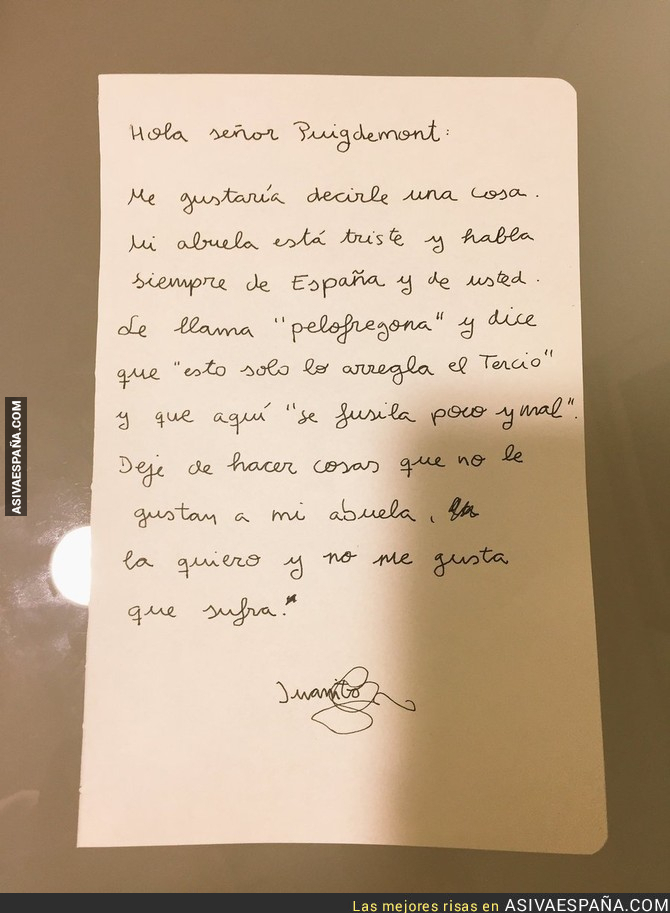 Hola señor Puigdemont:
Me gustaría decirle una cosa.
Mi abuela está triste y habla
siempre de España y de usted.
Le llama "pelofregona" y dice
que "esto solo lo arregla el Tercio"
y que aquí "se fusila poco y mal".
Deje de hacer cosas que no le
gustan a mi abuela,
la quiero y no me gusta
que sufra.
Juanito
ASIVAESPAÑA.COM
Las mejores risas en ASIVAESPAÑA.COM